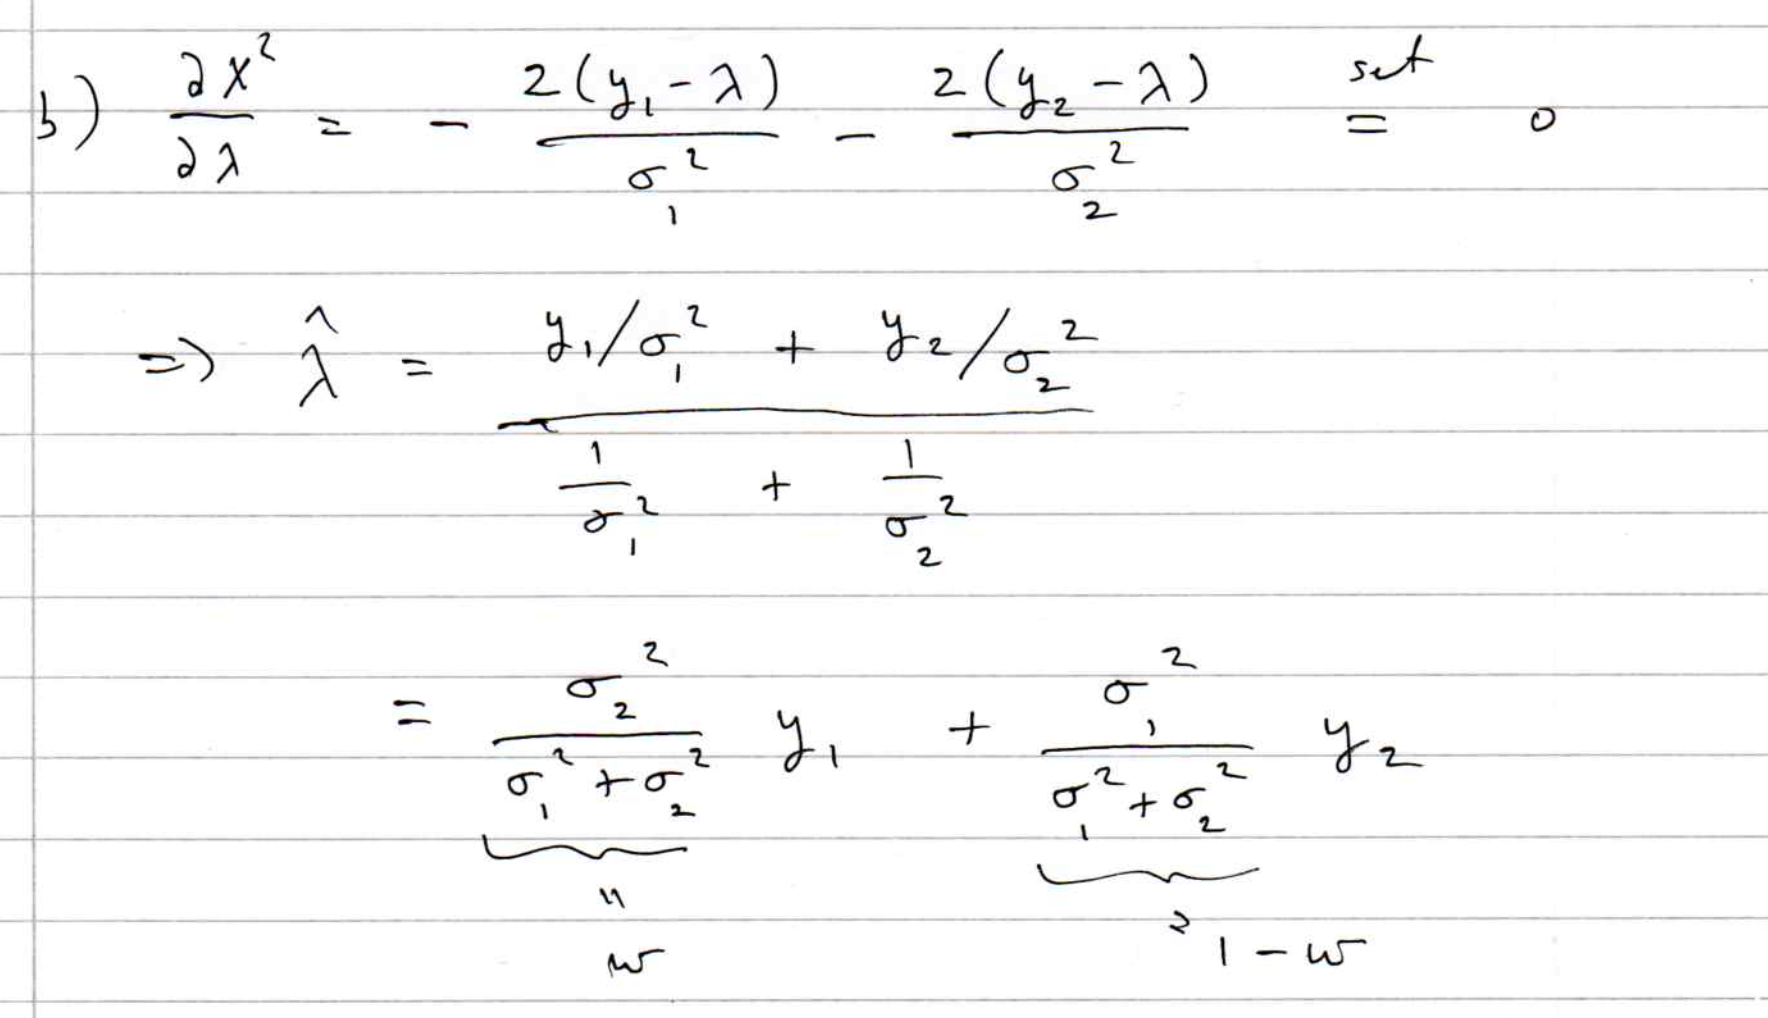 b) ∂χ²/∂λ = - 2(y₁ - λ)/σ₁² - 2(y₂ - λ)/σ₂² set = 0
=> λ̂ = (y₁/σ₁² + y₂/σ₂²) / (1/σ₁² + 1/σ₂²)
= σ₂²/(σ₁² + σ₂²) y₁ + σ₁²/(σ₁² + σ₂²) y₂
= w = 1 - w